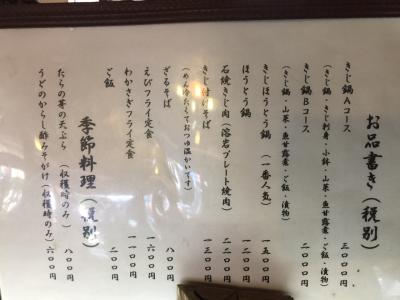 お品書き(税別)
きじ鍋Aコース 三〇〇〇円
(きじ鍋・きじ刺身・小鉢・山菜・魚甘露煮・ご飯・漬物)
きじ鍋Bコース 二〇〇〇円
(きじ鍋・山菜・魚甘露煮・ご飯・漬物)
きじほうとう鍋 (一番人気) 一五〇〇円
ほうとう鍋 一二〇〇円
石焼きじ肉(溶岩プレート焼肉) 二二〇〇円
きじ付けそば 一三〇〇円
(めん冷たくておつゆ温かいです)
ざるそば 八〇〇円
えびフライ定食 一六〇〇円
わかさぎフライ定食 一一〇〇円
ご飯 二〇〇円
季節料理(税別)
たらの芽の天ぷら (収穫時のみ) 八〇〇円
うどのからし酢みそがけ(収穫時のみ) 六〇〇円